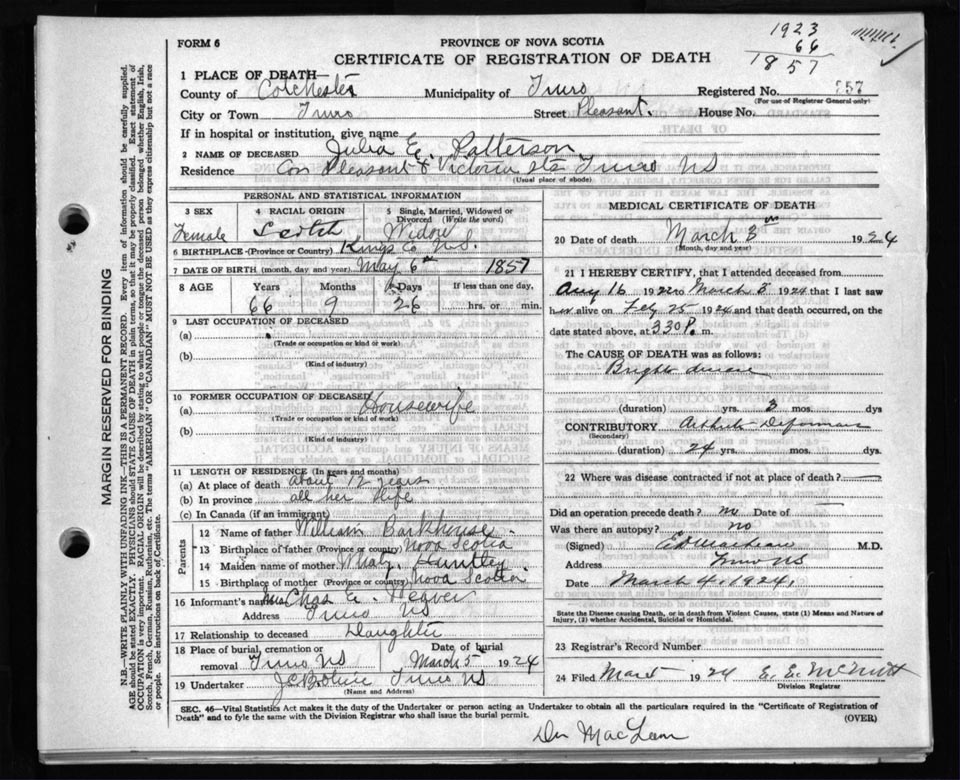 1923
66
1857
FORM 6
PROVINCE OF NOVA SCOTIA
CERTIFICATE OF REGISTRATION OF DEATH
1 PLACE OF DEATH—
County of Colchester Municipality of Truro Registered No. 257
(For use of Registrar General only)
City or Town Truro Street Pleasant. House No.
If in hospital or institution, give name
2 NAME OF DECEASED Julia E. Patterson
Residence Cor Pleasant & Victoria Sts Truro NS
(Usual place of abode)
PERSONAL AND STATISTICAL INFORMATION
3 SEX Female
4 RACIAL ORIGIN Scotch
5 Single, Married, Widowed or Divorced (Write the word) Widow
6 BIRTHPLACE (Province or Country) Kings Co N.S.
7 DATE OF BIRTH (month, day and year) May 6th 1857
8 AGE Years 66 Months 9 Days 26 If less than one day, hrs. or min.
9 LAST OCCUPATION OF DECEASED
(a)
(Trade or occupation or kind of work)
(b)
(Kind of industry)
10 FORMER OCCUPATION OF DECEASED
(a) Housewife
(Trade or occupation or kind of work)
(b)
(Kind of industry)
11 LENGTH OF RESIDENCE (In years and months)
(a) At place of death about 12 years
(b) In province all her life
(c) In Canada (if an immigrant)
Parents
12 Name of father William Barkhouse
13 Birthplace of father (Province or country) Nova Scotia
14 Maiden name of mother Mary Huntley
15 Birthplace of mother (Province or country) Nova Scotia
16 Informant's name Mrs Chas E. Weaver
Address Truro NS
17 Relationship to deceased Daughter
18 Place of burial, cremation or removal Truro NS Date of burial March 5 1924
19 Undertaker Truro NS
(Name and Address)
MEDICAL CERTIFICATE OF DEATH
20 Date of death March 3rd 1924
(Month, day and year)
21 I HEREBY CERTIFY, that I attended deceased from
Aug 16 1922 to March 3 1924 that I last saw
her alive on Feb 25 1924 and that death occurred, on the
date stated above, at 330 P. m.
The CAUSE OF DEATH was as follows:
Brights disease
(duration) yrs. 3 mos. dys
CONTRIBUTORY Arthritis Deformans
(Secondary)
(duration) 24 yrs. mos. dys.
22 Where was disease contracted if not at place of death?
Did an operation precede death? no Date of
Was there an autopsy? no
(Signed) M.D.
Address Truro NS
Date March 4, 1924,
State the Disease causing Death, or in death from Violent Causes, state (1) Means and Nature of
Injury, (2) whether Accidental, Suicidal or Homicidal.
23 Registrar's Record Number
24 Filed Mar 5 1924 E. E. McNutt
Division Registrar
SEC. 46—Vital Statistics Act makes it the duty of the Undertaker or person acting as Undertaker to obtain all the particulars required in the "Certificate of Registration of
Death" and to fyle the same with the Division Registrar who shall issue the burial permit. (OVER)
Dr MacLean
MARGIN RESERVED FOR BINDING
N.B.—WRITE PLAINLY WITH UNFADING INK—THIS IS A PERMANENT RECORD. Every item of information should be carefully supplied.
AGE should be stated EXACTLY. PHYSICIANS should STATE CAUSE OF DEATH in plain terms, so that it may be properly classified. Exact statement of
OCCUPATION is very important. RACIAL ORIGIN will be described by stating to what people or tongue the deceased person belonged whether English, Irish,
Scotch, French, German, Russian, Ruthenian, etc. The terms "AMERICAN" OR "CANADIAN" MUST NOT BE USED as they express citizenship but not a race
or people. See instructions on back of Certificate.